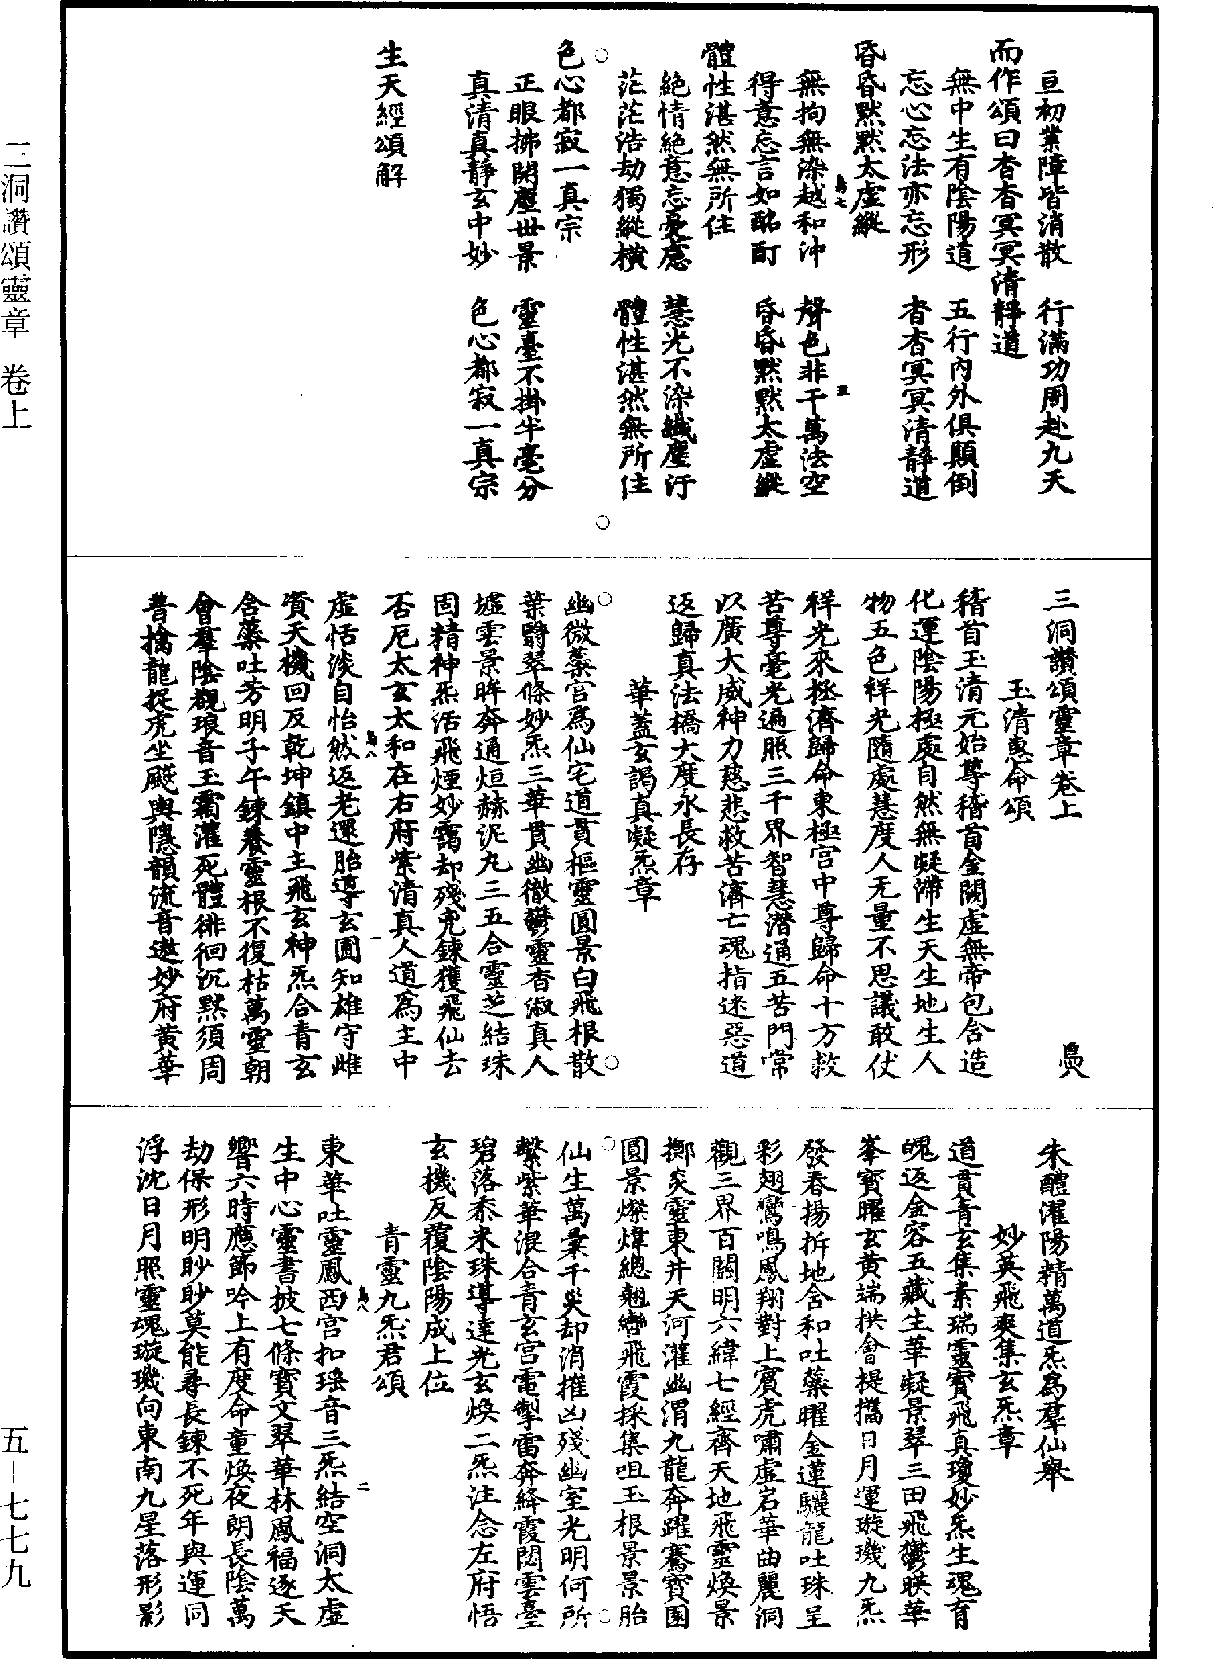 亘初業障皆消散　行滿功周赴九天
而作頌曰杳杳冥冥清靜道
無中生有陰陽道　五行內外俱顛倒
忘心忘法亦忘形　杳杳冥冥清靜道
昏昏默默太虛縱
無拘無染越和沖　聲色非干萬法空
得意忘言如酩酊　昏昏默默太虛縱
體性湛然無所住
絕情絕意忘憂慮　慧光不染纖塵汙
茫茫浩劫獨縱橫　體性湛然無所住
色心都寂一真宗
正眼拂開塵世景　靈臺不掛半毫分
真清真靜玄中妙　色心都寂一真宗
生天經頌解
三洞讚頌靈章卷上
玉清惠命頌
稽首玉清元始尊稽首金闕虛無帝包含造
化運陰陽極處自然無凝滯生天生地生人
物五色祥光隨處慧度人无量不思議敢仗
祥光來拯濟歸命東極宮中尊歸命十方救
苦尊毫光遍照三千界智慧潛通五苦門常
以廣大威神力慈悲救苦濟亡魂指迷惡道
返歸真法橋大度永長存
華蓋玄謁真凝炁章
幽微蘂宮為仙宅道貫樞靈圓景白飛根散
葉鬱翠條妙炁三華貫幽徹鬱靈杳淑真人
墟雲景眸奔通烜赫泥丸三五合靈芝結珠
固精神炁活飛煙妙靄却殘兇鍊獲飛仙去
否厄太玄太和在右府紫清真人道為主中
虛恬淡自怡然返老還胎導玄圃知雄守雌
資天機回反乾坤鎮中主飛玄神炁合青玄
含蘂吐芳明子午鍊養靈根不復枯萬靈朝
會羣陰觀琅音玉霜灌死體徘徊沉默須周
普擒龍捉虎坐飈輿隱韻流音遨妙府黃華
朱醴濯陽精萬道炁為羣仙舉
妙英飛爽集玄炁章
道貫青玄集素瑞靈寶飛真瓊妙炁生魂育
魄返金容五藏生華凝景翠三田飛鬱暎華
峯寶曜玄黃端拱會提攜日月運璇璣九炁
發春揚折地含和吐藥曜金蓮驪龍吐珠呈
彩翅鸞鳴鳳翔對上賓虎嘯虛岩華曲麗洞
觀三界百關明六緯七經齊天地飛靈煥景
擲炎靈東井天河灌幽渭九龍奔躍騫寶園
圓景燦煒總翹轡飛霞採集咀玉根景景胎
仙生萬彙千災却消摧凶殘幽室光明何所
繫紫華混合青玄宮電掣雷奔絳霞閟雲臺
碧落黍米珠導達光玄煥二炁注念左府悟
玄機反覆陰陽成上位
青靈九炁君頌
東華吐靈鳳西宮扣瑤音三炁結空洞太虛
生中心靈書披七條寶文翠華林鳳福逐天
響六時應節吟上有度命童煥夜朗長陰萬
劫保形明眇眇莫能尋長鍊不死年與運同
浮沈日月照靈魂璇璣向東南九星落形影
三洞讚頌靈章　卷上
五－七七九